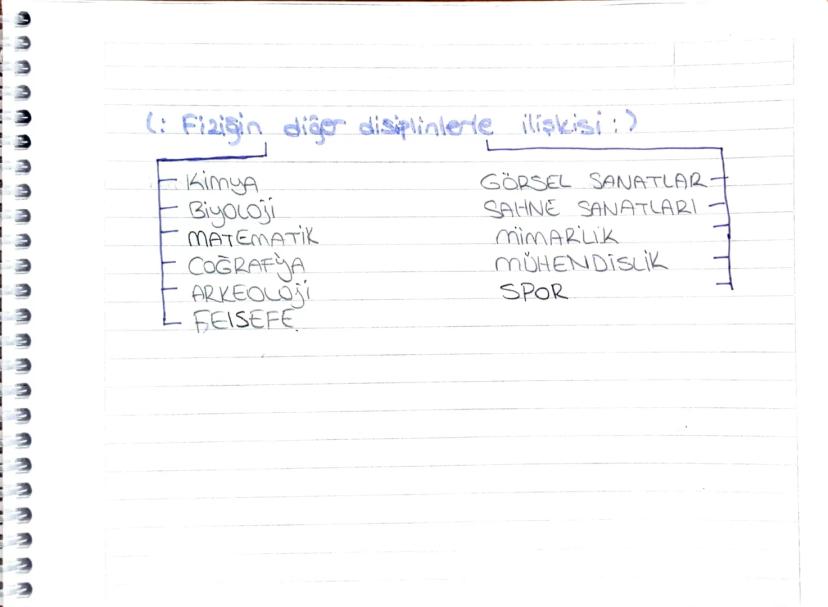 (: Fiziğin diğer disiplinlerle ilişkisi :)
Kimya
Biyoloji
MATEMATİK
COĞRAFYA
ARKEOLOji
FElSEFE
GÖRSEL SANATLAR
SAHNE SANATLARI
MİMARLIK
MÜHENDİSLİK
SPOR